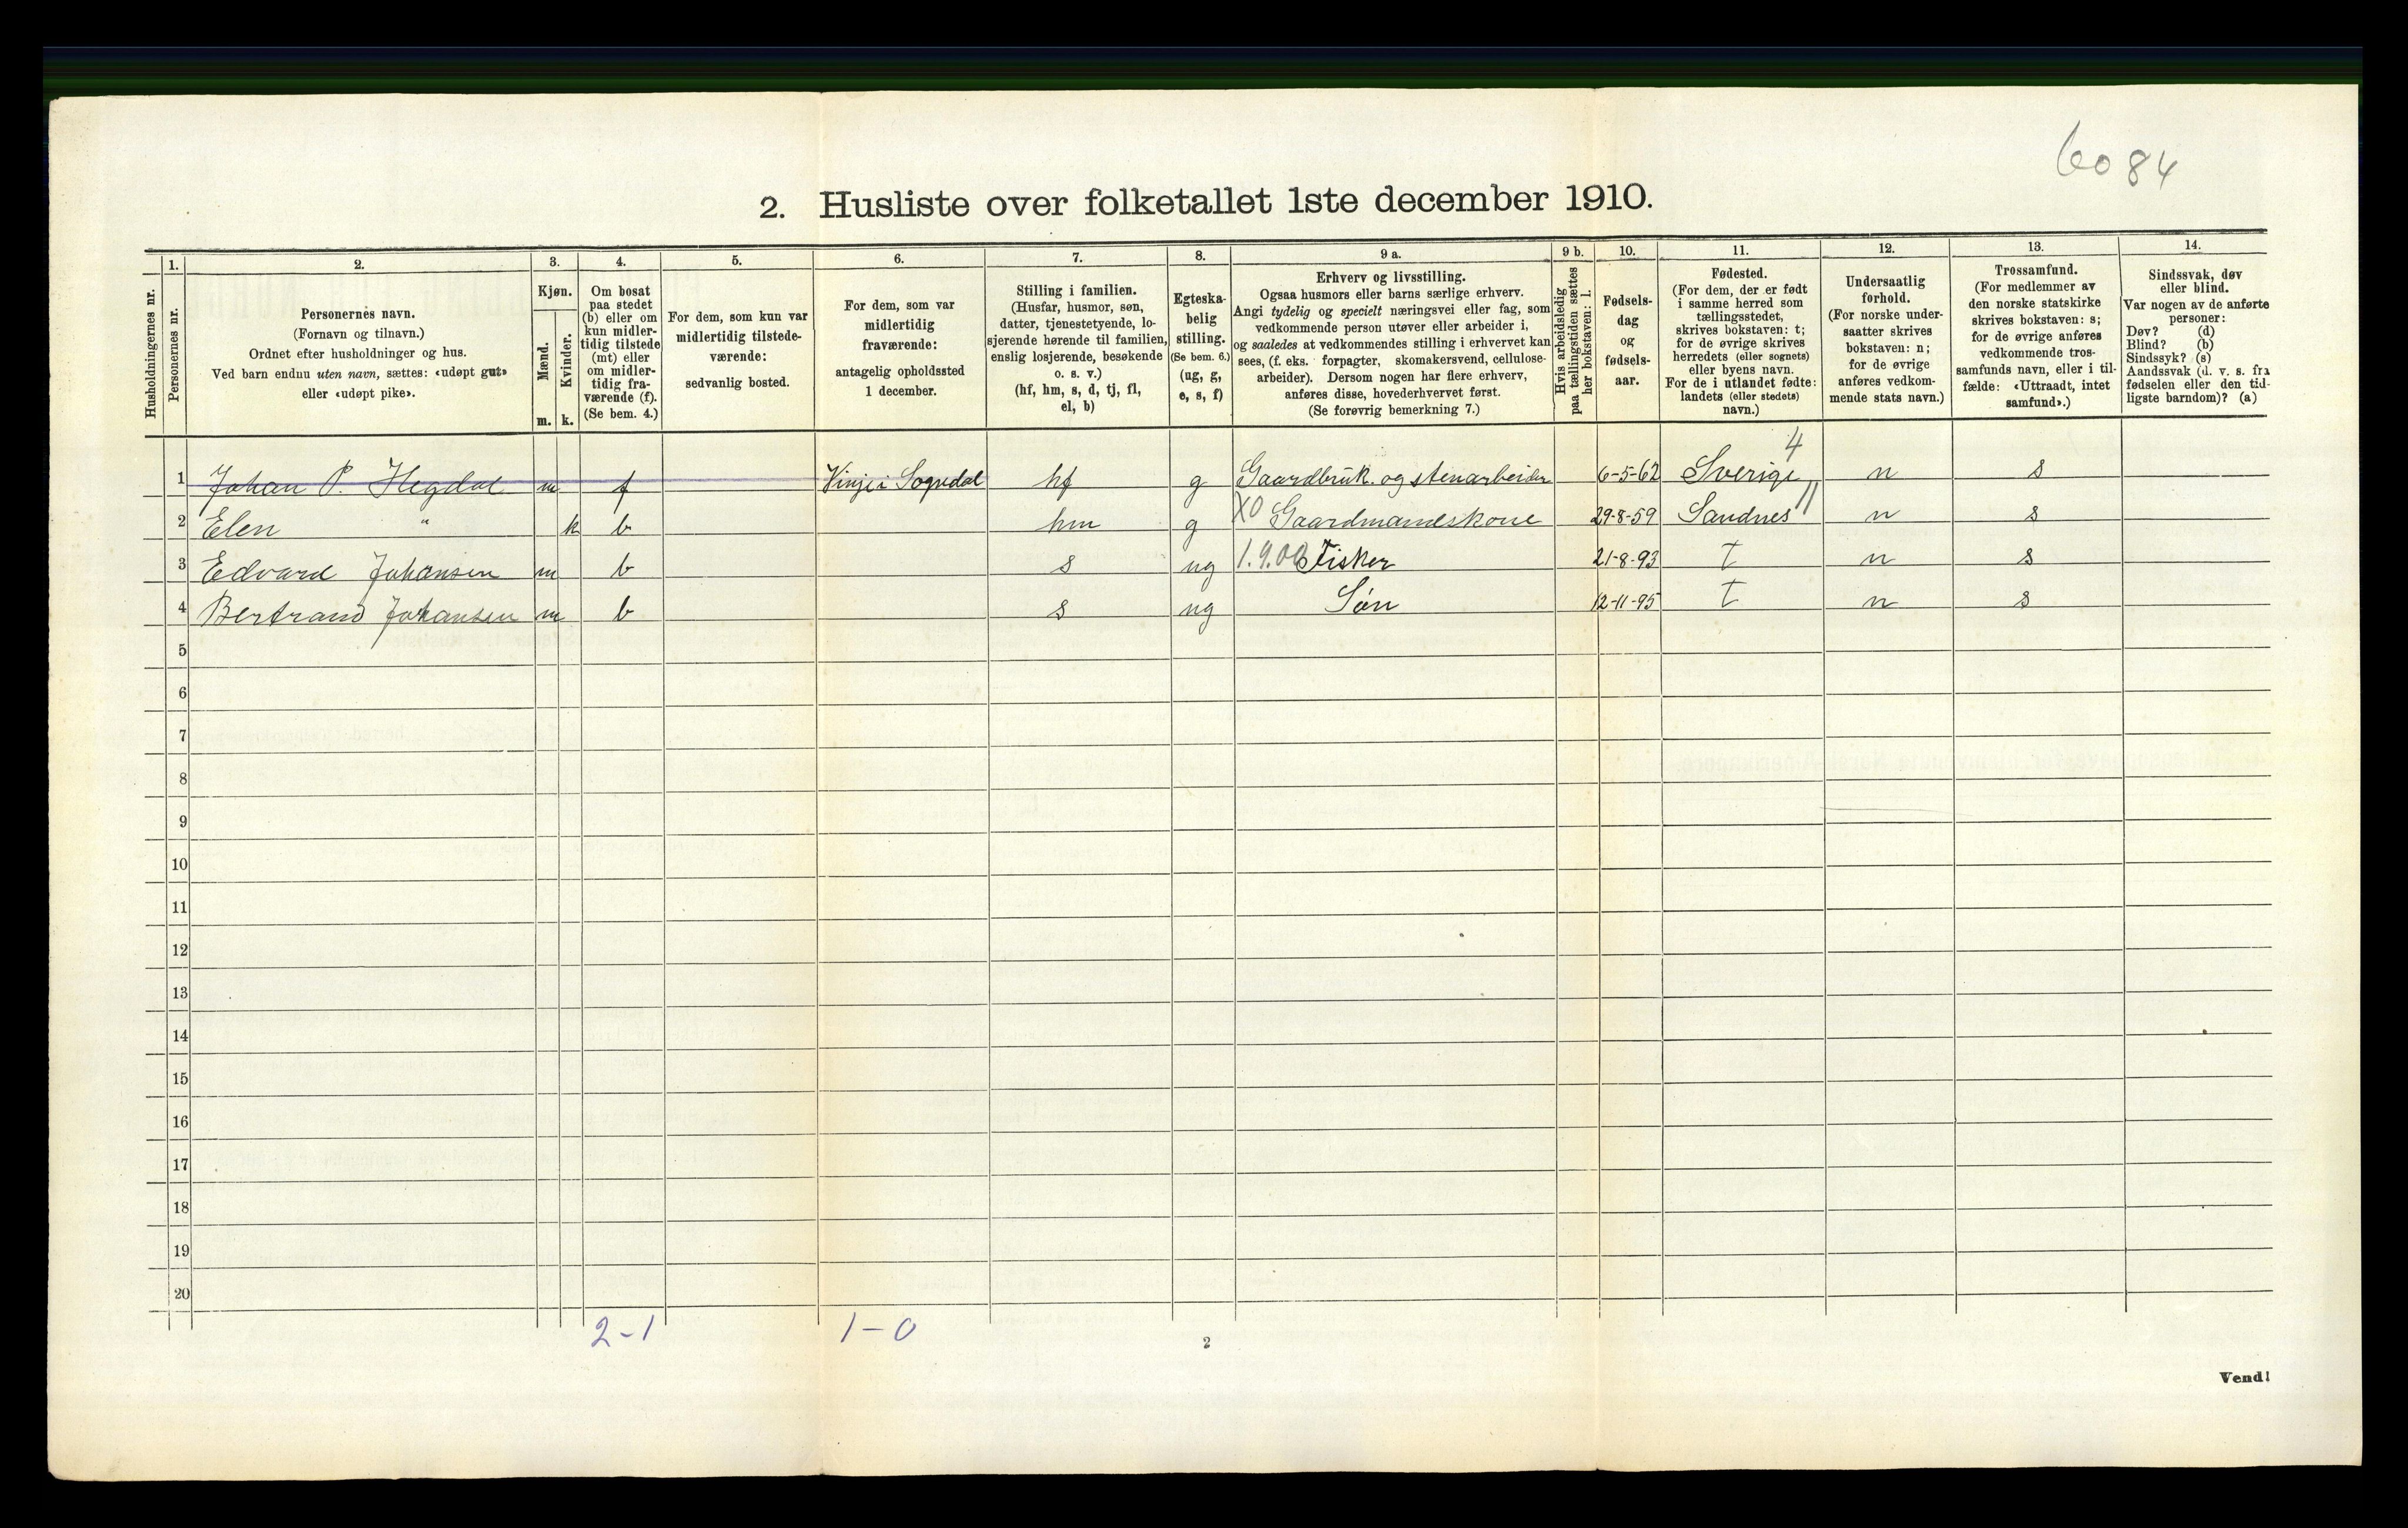 6084
2. Husliste over folketallet 1ste december 1910.
Husholdningernes nr.
1.
Personernes nr.
2.
Personernes navn.
(Fornavn og tilnavn.)
Ordnet efter husholdninger og hus.
Ved barn endnu uten navn, sættes: «udøpt gut»
eller «udøpt pike».
3.
Kjøn.
Mænd.
Kvinder.
m. k.
4.
Om bosat
paa stedet
(b) eller om
kun midler-
tidig tilstede
(mt) eller
om midler-
tidig fra-
værende (f).
(Se bem. 4.)
5.
For dem, som kun var
midlertidig tilstede-
værende:
sedvanlig bosted.
6.
For dem, som var
midlertidig
fraværende:
antagelig opholdssted
1 december.
7.
Stilling i familien.
(Husfar, husmor, søn,
datter, tjenestetyende, lo-
sjerende hørende til familien,
enslig losjerende, besøkende
o. s. v.)
(hf, hm, s, d, tj, fl,
el, b)
8.
Egteska-
belig
stilling.
(Se bem. 6.)
(ug, g,
e, s, f)
9 a.
Erhverv og livsstilling.
Ogsaa husmors eller barns særlige erhverv.
Angi tydelig og specielt næringsvei eller fag, som
vedkommende person utøver eller arbeider i,
og saaledes at vedkommendes stilling i erhvervet kan
sees, (f. eks. forpagter, skomakersvend, cellulose-
arbeider). Dersom nogen har flere erhverv,
anføres disse, hovederhvervet først.
(Se forøvrig bemerkning 7.)
9 b.
Hvis arbeidsledig
paa tællingstiden sættes
her bokstaven: l.
10.
Fødsels-
dag
og
fødsels-
aar.
11.
Fødested.
(For dem, der er født
i samme herred som
tællingsstedet,
skrives bokstaven: t;
for de øvrige skrives
herredets (eller sognets)
eller byens navn.
For de i utlandet fødte:
landets (eller stedets)
navn.)
12.
Undersaatlig
forhold.
(For norske under-
saatter skrives
bokstaven: n;
for de øvrige
anføres vedkom-
mende stats navn.)
13.
Trossamfund.
(For medlemmer av
den norske statskirke
skrives bokstaven: s;
for de øvrige anføres
vedkommende tros-
samfunds navn, eller i til-
fælde: «Uttraadt, intet
samfund».)
14.
Sindssvak, døv
eller blind.
Var nogen av de anførte
personer:
Døv? (d)
Blind? (b)
Sindssyk? (s)
Aandssvak (d. v. s. fra
fødselen eller den tid-
ligste barndom)? (a)
4
1 Johan P. Hegdal m f Vinje i Sogndal hf g Gaardbruk. og stenarbeider 6-5-62 Sverige n s
2 Elen " k b hm g XO Gaardmandskone 29-8-59 Sandnes 11 n s
3 Edvard Johansen m b s ug 1.9.00 Fisker 21-8-93 t n s
4 Bertrand Johansen m b s ug Søn 12-11-95 t n s
5
6
7
8
9
10
11
12
13
14
15
16
17
18
19
20
2-1 1-0
2
Vend!